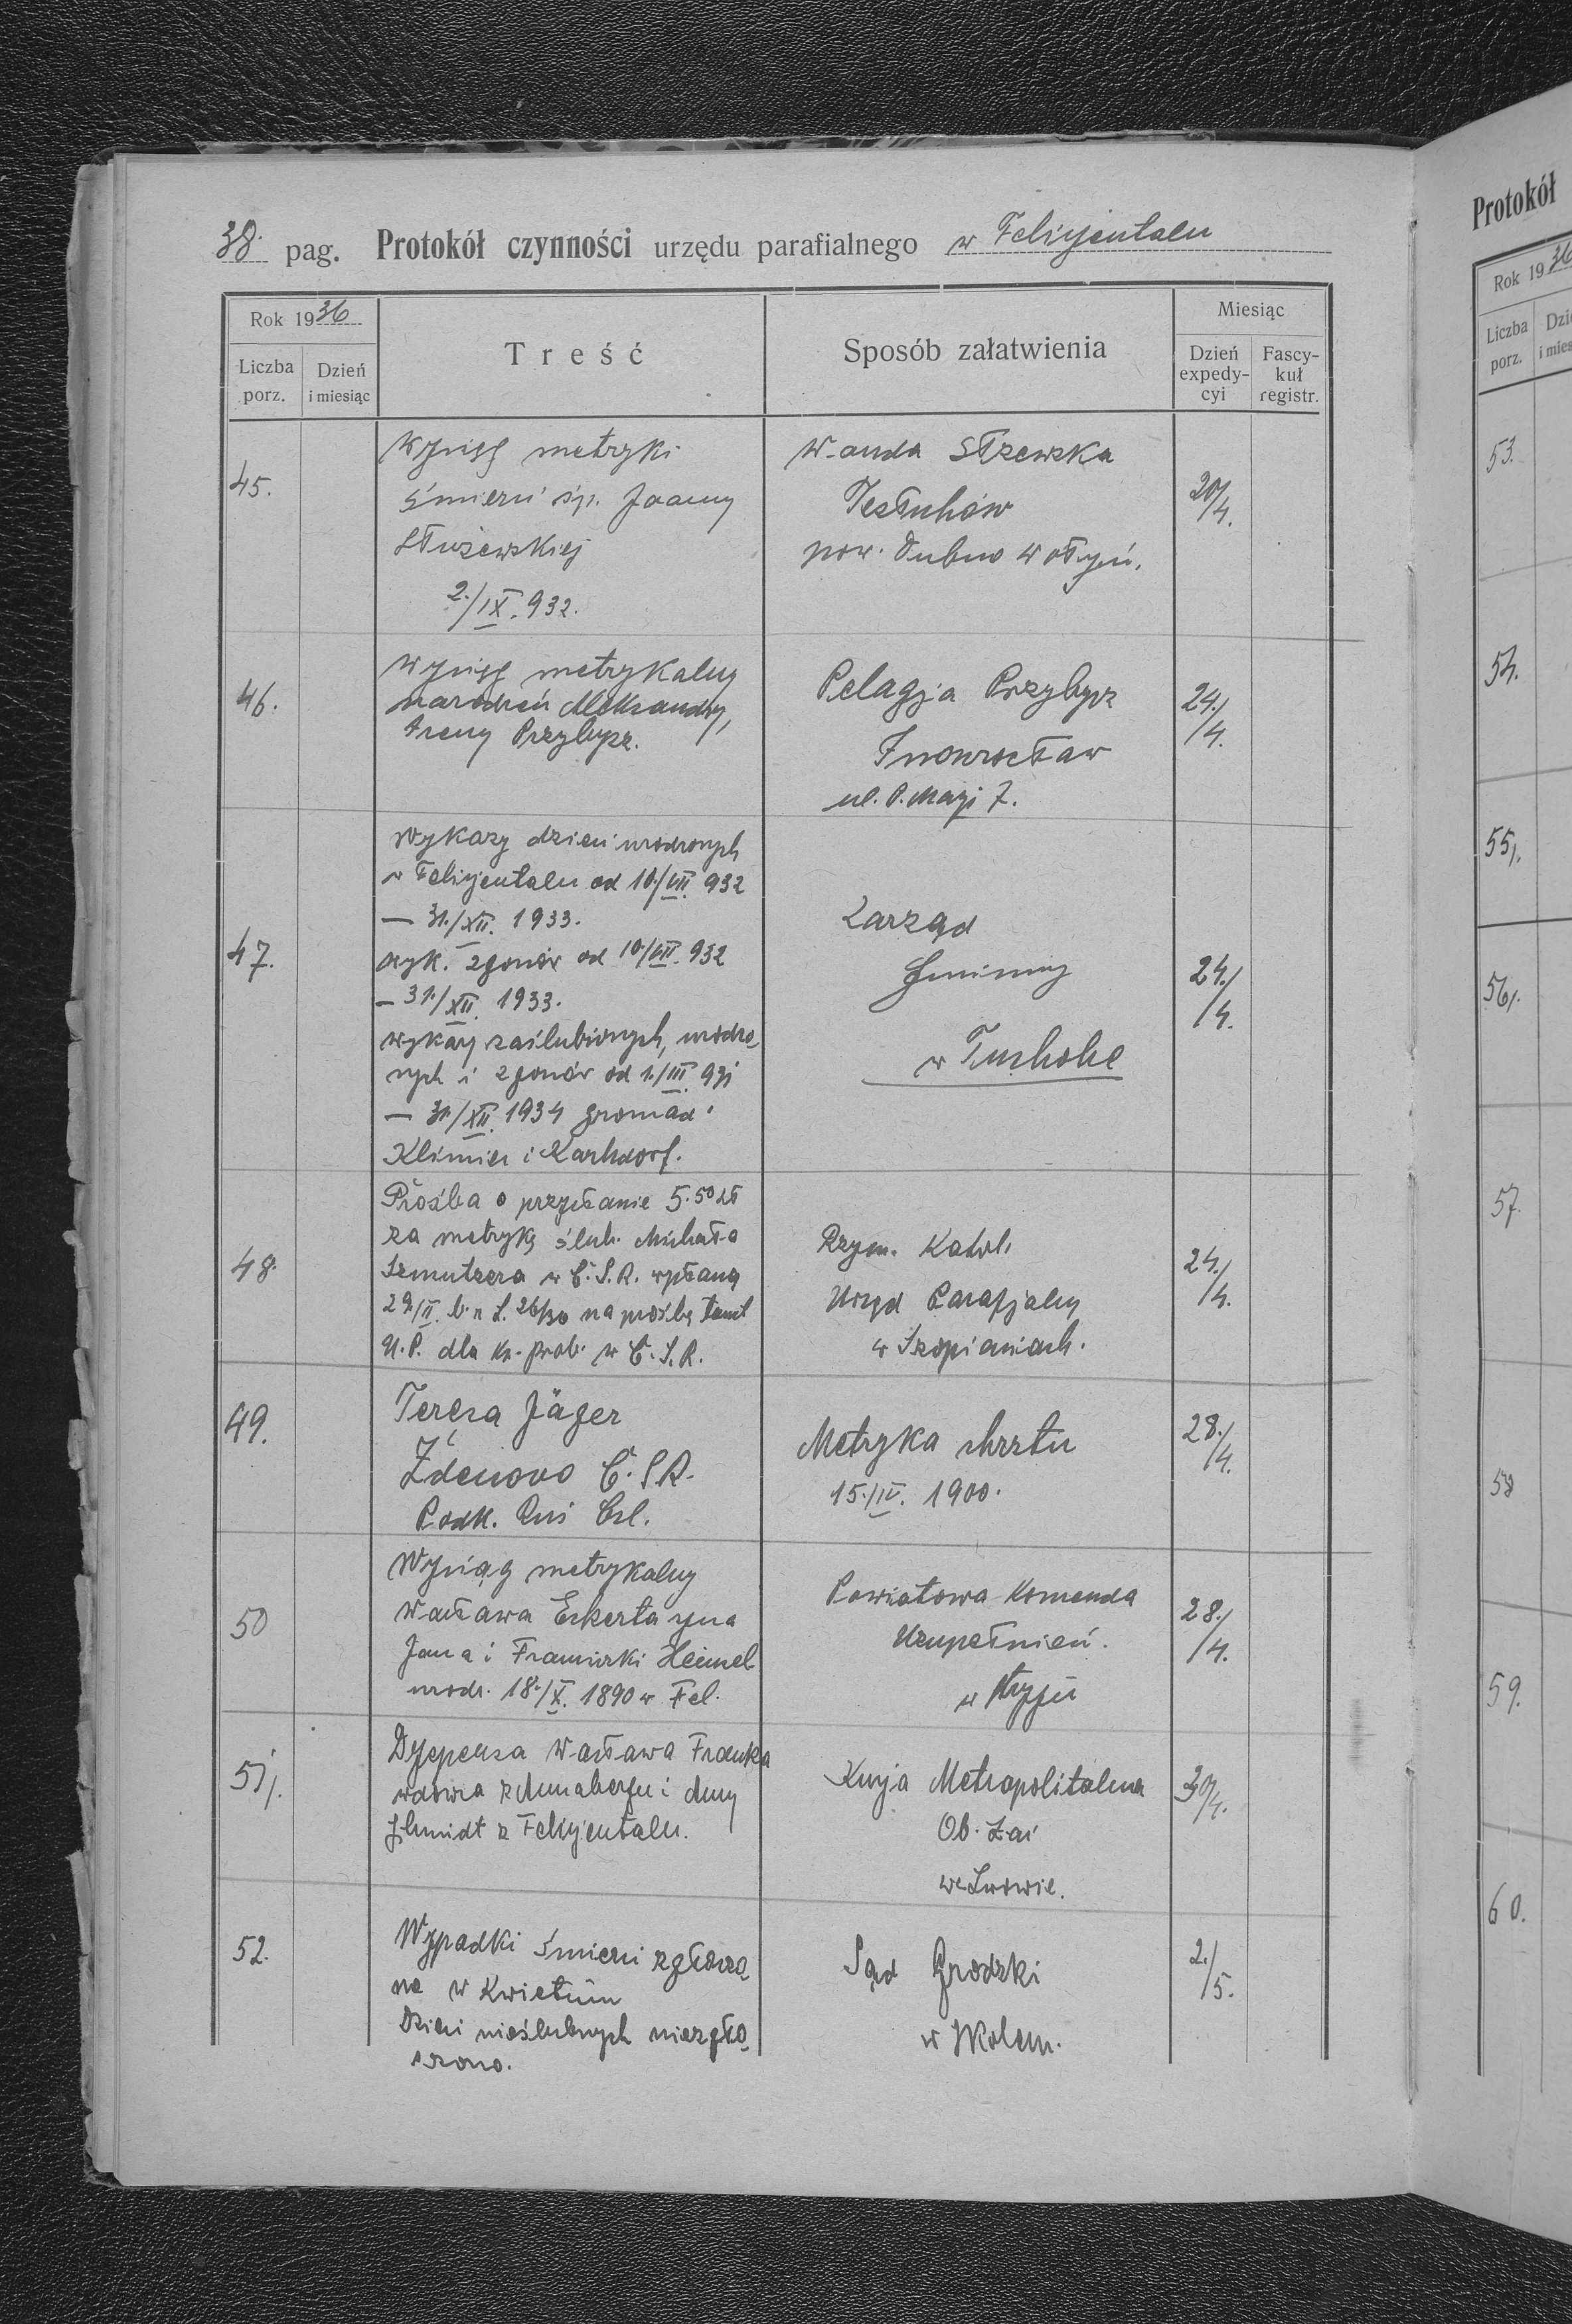 38. pag. Protokół czynności urzędu parafialnego w Felicjentalu
Rok 1936
Liczba porz.
Dzień i miesiąc
Treść
Sposób załatwienia
Miesiąc
Dzień expedy-cyi
Fascy-kuł registr.
45.
Wyciąg metryki
śmierci śp. Joanny
Służewskiej
2./IX. 932.
Wanda
pow. Dubno Wołyń.
20/4.
46.
Wyciąg metrykalny
narodzeń Aleksandry,
Ireny Przybysz.
Pelagja Przybysz
Inowrocław
ul. P. Marji 7.
24./4.
47.
Wykazy dzieci urodzonych
w Felicjentalu od 10./VII. 932
— 31./XII. 1933.
wyk. zgonów od 10./VII. 932
— 31./XII. 1933.
wykazy zaślubionych, urodzo-
nych i zgonów od 1./III.
— 31./XII. 1934 gromad:
Klimiec i Karlsdorf.
Zarząd
Gminny
w Tucholce
24./4.
48.
Prośba o przysłanie 5.50 zł
za metrykę ślub. Michała
w Č.S.R. wysłaną
29/II. b.r. L. 26/30 na prośbę tamt
U.P. dla ks. prob. w Č.S.R.
Rzym. Katol.
Urząd Parafjalny
w
24./4.
49.
Teresa Jäger
Ždenovo Č.S.R.
Podk. Rus Čsl.
Metryka chrztu
15./IV. 1900.
28./4.
50
Wyciąg metrykalny
Wacława Eckerta syna
Jana i Franciszki Heimel
urodz. 18./X. 1890 w Fel.
Powiatowa Komenda
Uzupełnień.
w Stryju
28./4.
51.
Dyspensa Wacława Franka
wdowca z Annabergu i Anny
Schmidt z Felicjentalu.
Kurja Metropolitalna
Ob. Łac
we Lwowie.
30/4.
52.
Wypadki śmierci zgłoszo-
ne w Kwietniu
Dzieci nieślubnych niezgło-
szono.
Sąd Grodzki
w Skolem.
2./5.
Protokół
Rok 1936
Liczba porz.
53.
54.
55.
56.
57.
58
59.
60.